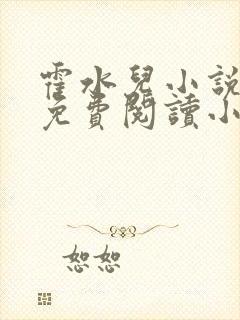 霍水兒小說
免費閱讀小
恕恕